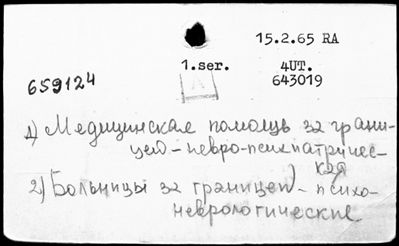 15.2.65 RA
1.ser. 4UT.
659124 643019
A
1) Медицинская помощь за грани-
цею - невро-психиатричес-
кая
2) Больницы за границей - психо-
неврологические